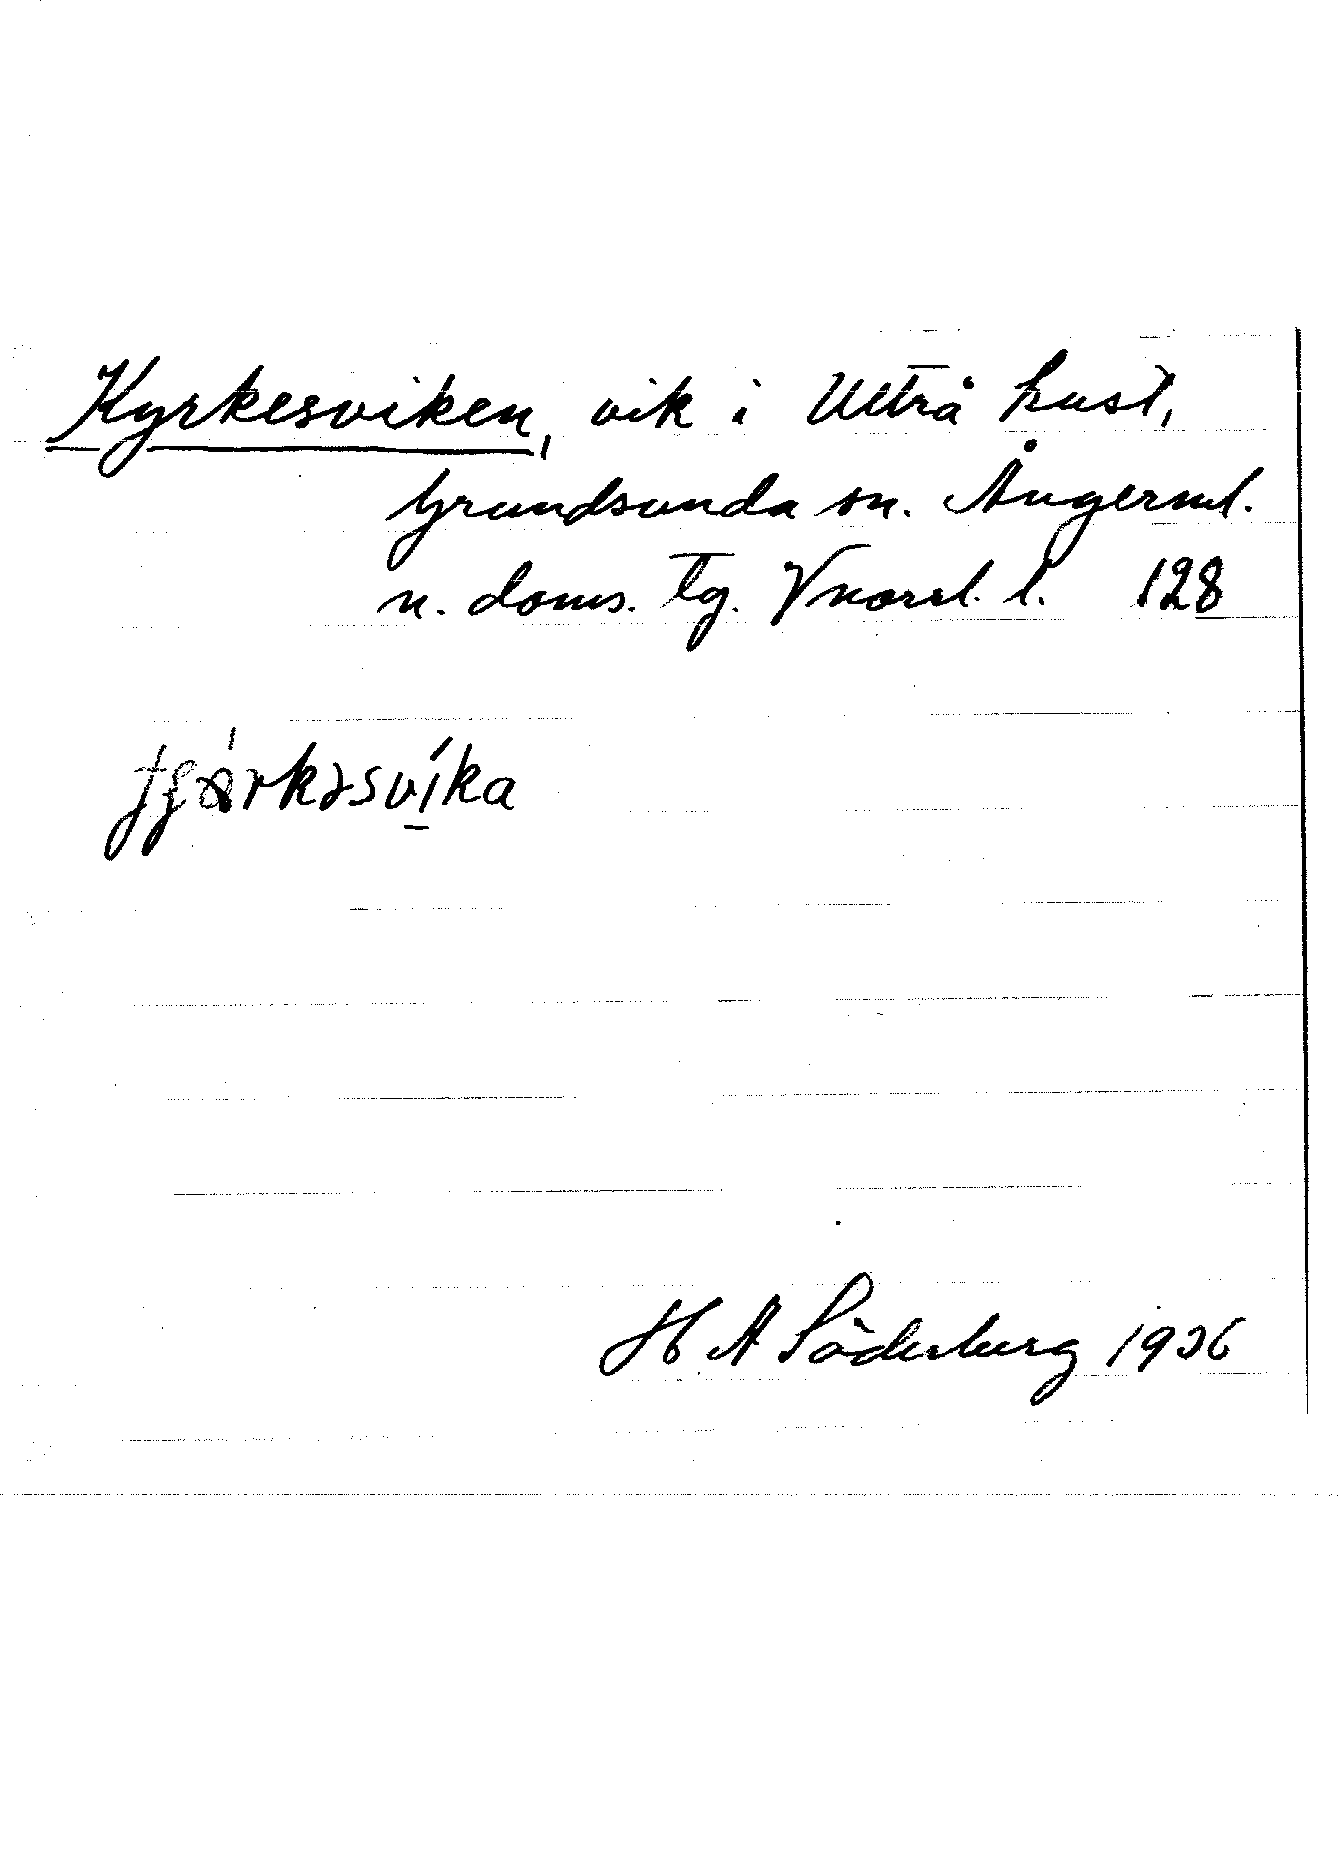 Kyrkesviken, vik i Utträ kust,
Grundsunda sn. Ångerml.
n. doms. Tg. Vnorrl. l. 128
H A Söderberg 1936